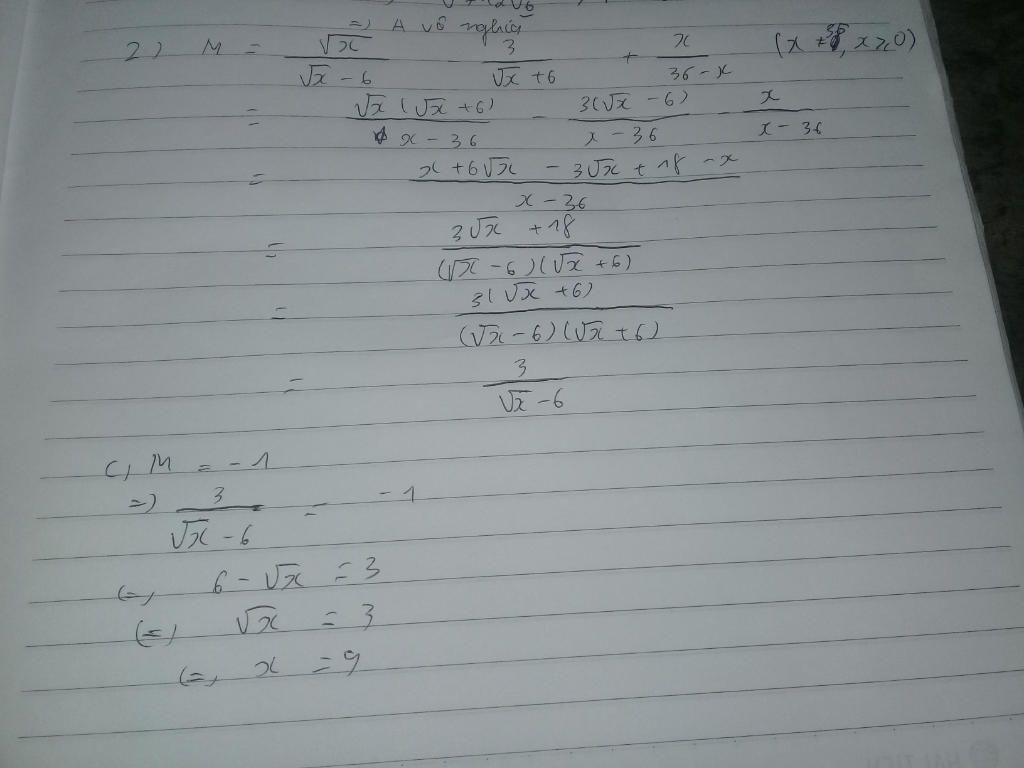 =) A vô nghiệm
2) M = √x/(√x - 6) - 3/(√x + 6) + x/(36 - x) (x ≠ 36, x ≥ 0)
= √x(√x + 6)/(x - 36) - 3(√x - 6)/(x - 36) - x/(x - 36)
= (x + 6√x - 3√x + 18 - x)/(x - 36)
= (3√x + 18)/((√x - 6)(√x + 6))
= 3(√x + 6)/((√x - 6)(√x + 6))
= 3/(√x - 6)
C, M = - 1
=) 3/(√x - 6) = - 1
(=, 6 - √x = 3
(=, √x = 3
(=, x = 9